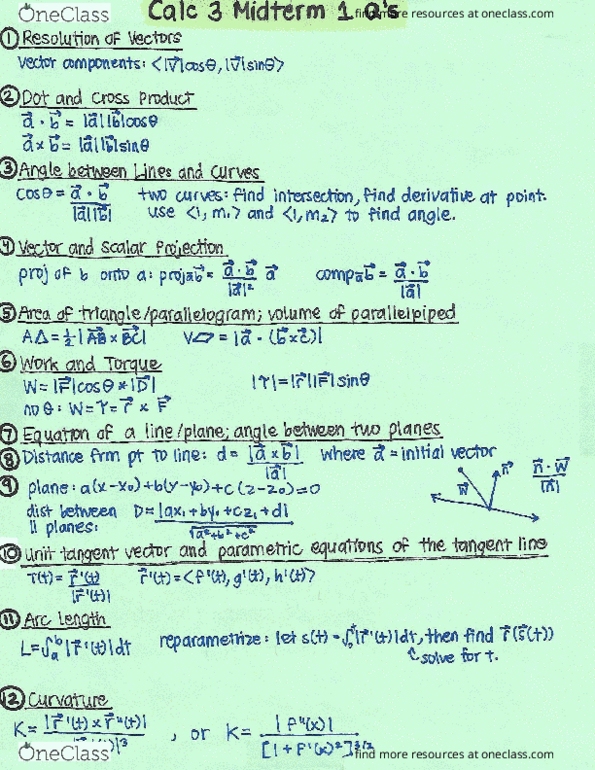 OneClass
Calc 3 Midterm 1 Q's
find more resources at oneclass.com
① Resolution of Vectors
vector components: <|v⃗|cosθ, |v⃗|sinθ>
② Dot and Cross Product
a⃗ · b⃗ = |a⃗||b⃗|cosθ
a⃗ x b⃗ = |a⃗||b⃗|sinθ
③ Angle between Lines and Curves
cosθ = a⃗ · b⃗ / |a⃗||b⃗| two curves: find intersection, find derivative at point.
use <1, m₁> and <1, m₂> to find angle.
④ Vector and Scalar Projection
proj of b onto a: projₐb⃗ = a⃗ · b⃗ / |a⃗|² a⃗ compₐb⃗ = a⃗ · b⃗ / |a⃗|
⑤ Area of triangle/parallelogram; volume of parallelpiped
A△ = ½|AB⃗ x BC⃗| V▱ = |a⃗ · (b⃗ x c⃗)|
⑥ Work and Torque
W = |F⃗|cosθ * |D⃗| |τ| = |r⃗||F⃗|sinθ
no θ: W = τ = r⃗ x F⃗
⑦ Equation of a line/plane; angle between two planes
⑧ Distance frm pt to line: d = |a⃗ x b⃗| / |a⃗| where a⃗ = initial vector
⑨ plane: a(x-x₀)+b(y-y₀)+c(z-z₀)=0
w⃗ n⃗ n⃗ · w⃗ / |n⃗|
dist between || planes: D = |ax₁+by₁+cz₁+d| / √a²+b²+c²
⑩ Unit tangent vector and parametric equations of the tangent line
T(t) = r⃗'(t) / |r⃗'(t)| r⃗'(t) = <f'(t), g'(t), h'(t)>
⑪ Arc length
L = ∫ₐᵇ |r⃗'(t)|dt reparametrize: let s(t) = ∫₀ᵗ |r⃗'(t)|dt, then find r⃗(s(t))
↑ solve for t.
⑫ Curvature
K = |r⃗'(t) x r⃗''(t)| / |r⃗'(t)|³ , or K = |f''(x)| / [1+f'(x)²]^3/2
OneClass
find more resources at oneclass.com